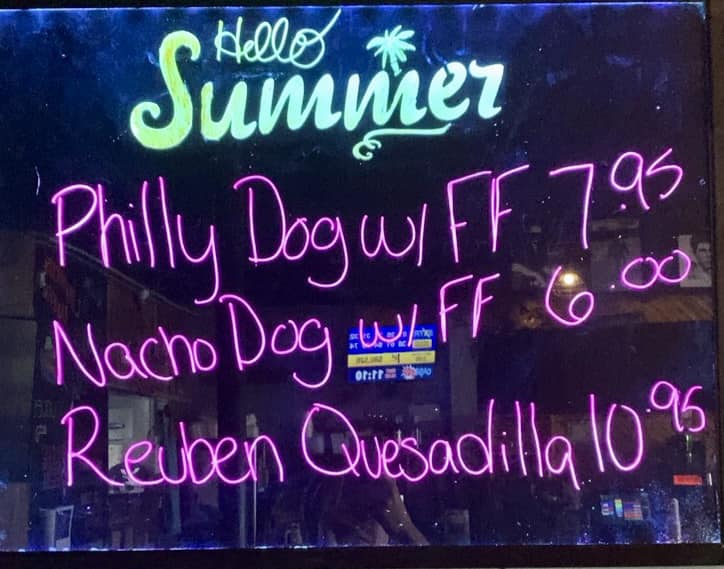 Hello
Summer
Philly Dog w/ FF 7.95
Nacho Dog w/ FF 6.00
Reuben Quesadilla 10.95